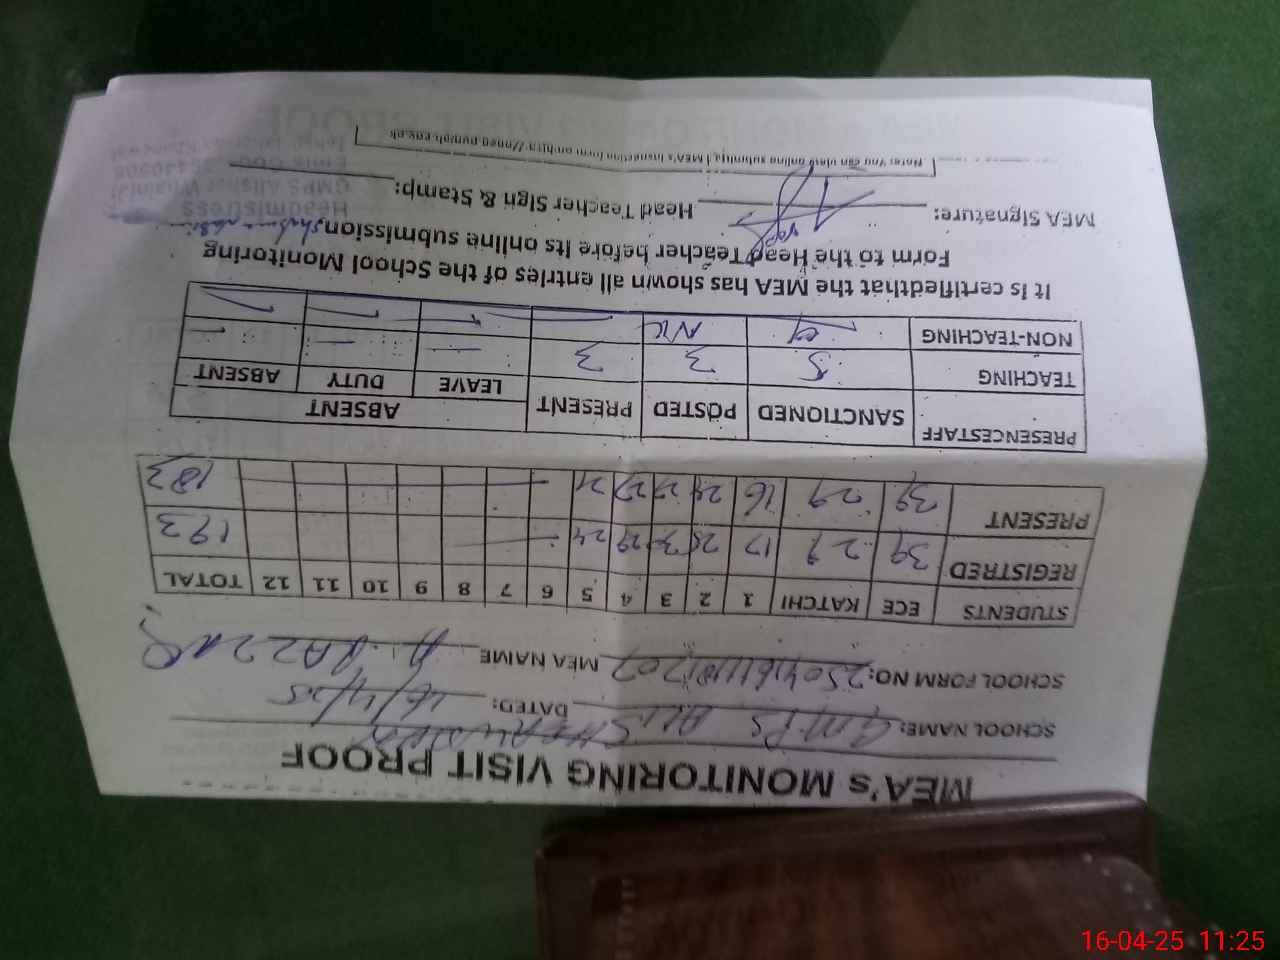 MEA's MONITORING VISIT PROOF
SCHOOL NAME: G.M.P.S ALI SHER DATED: 16/4/25
SCHOOL FORM NO: MEA NAME A. RAZZAQ
STUDENTS ECE KATCHI 1 2 3 4 5 6 7 8 9 10 11 12 TOTAL
REGISTRED 39 29 17 24 193
PRESENT 39 29 16 24 27 27 21 183
PRESENCESTAFF SANCTIONED POSTED PRESENT ABSENT
LEAVE DUTY ABSENT
TEACHING 5 3 3 — — —
NON-TEACHING Nil
It is certifiedthat the MEA has shown all entries of the School Monitoring
Form to the Head Teacher before its online submission.
MEA Signature: Head Teacher Sign & Stamp:
Headmistress
Note: You can view online submitted MEA's inspection form on
16-04-25 11:25